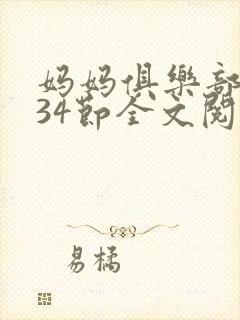 妈妈俱樂部
34節全文閱
易橘